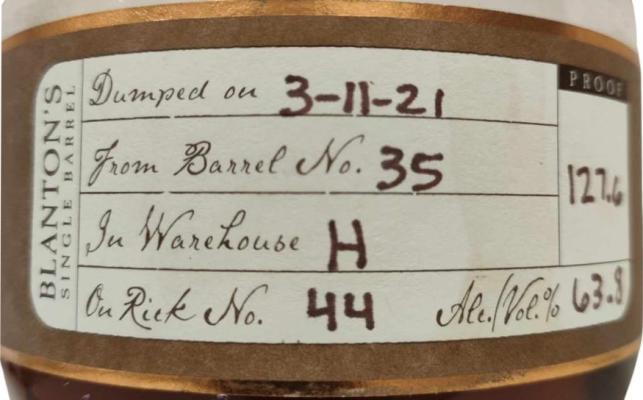 BLANTON'S
SINGLE BARREL
Dumped on 3-11-21
PROOF
From Barrel No. 35
127.6
In Warehouse H
On Rick No. 44 Alc./Vol.% 63.8